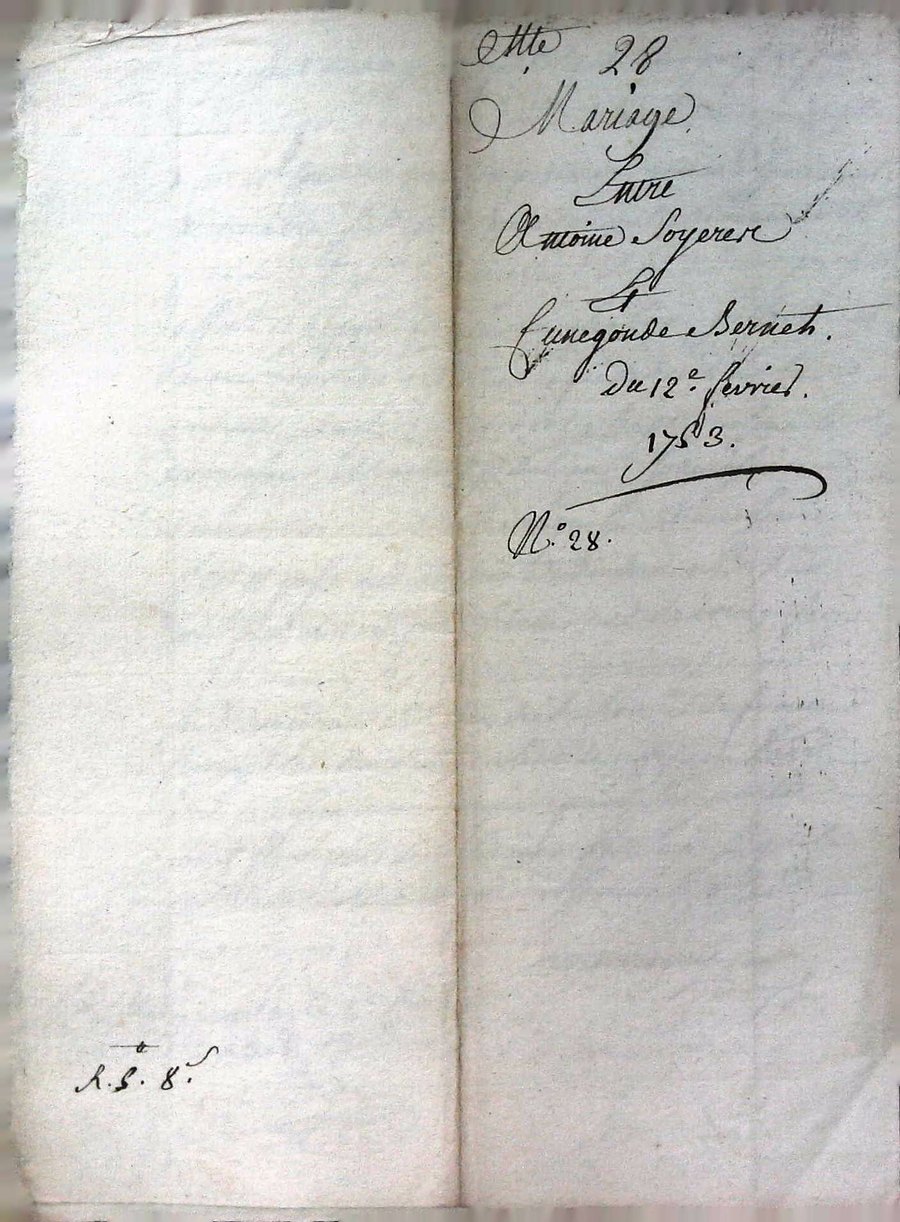 28
Mariage
Entre
Antoine Soyeres
Et
Cunegonde Berneh.
Du 12e fevrier.
1753.
No. 28.
R. S. 8s.